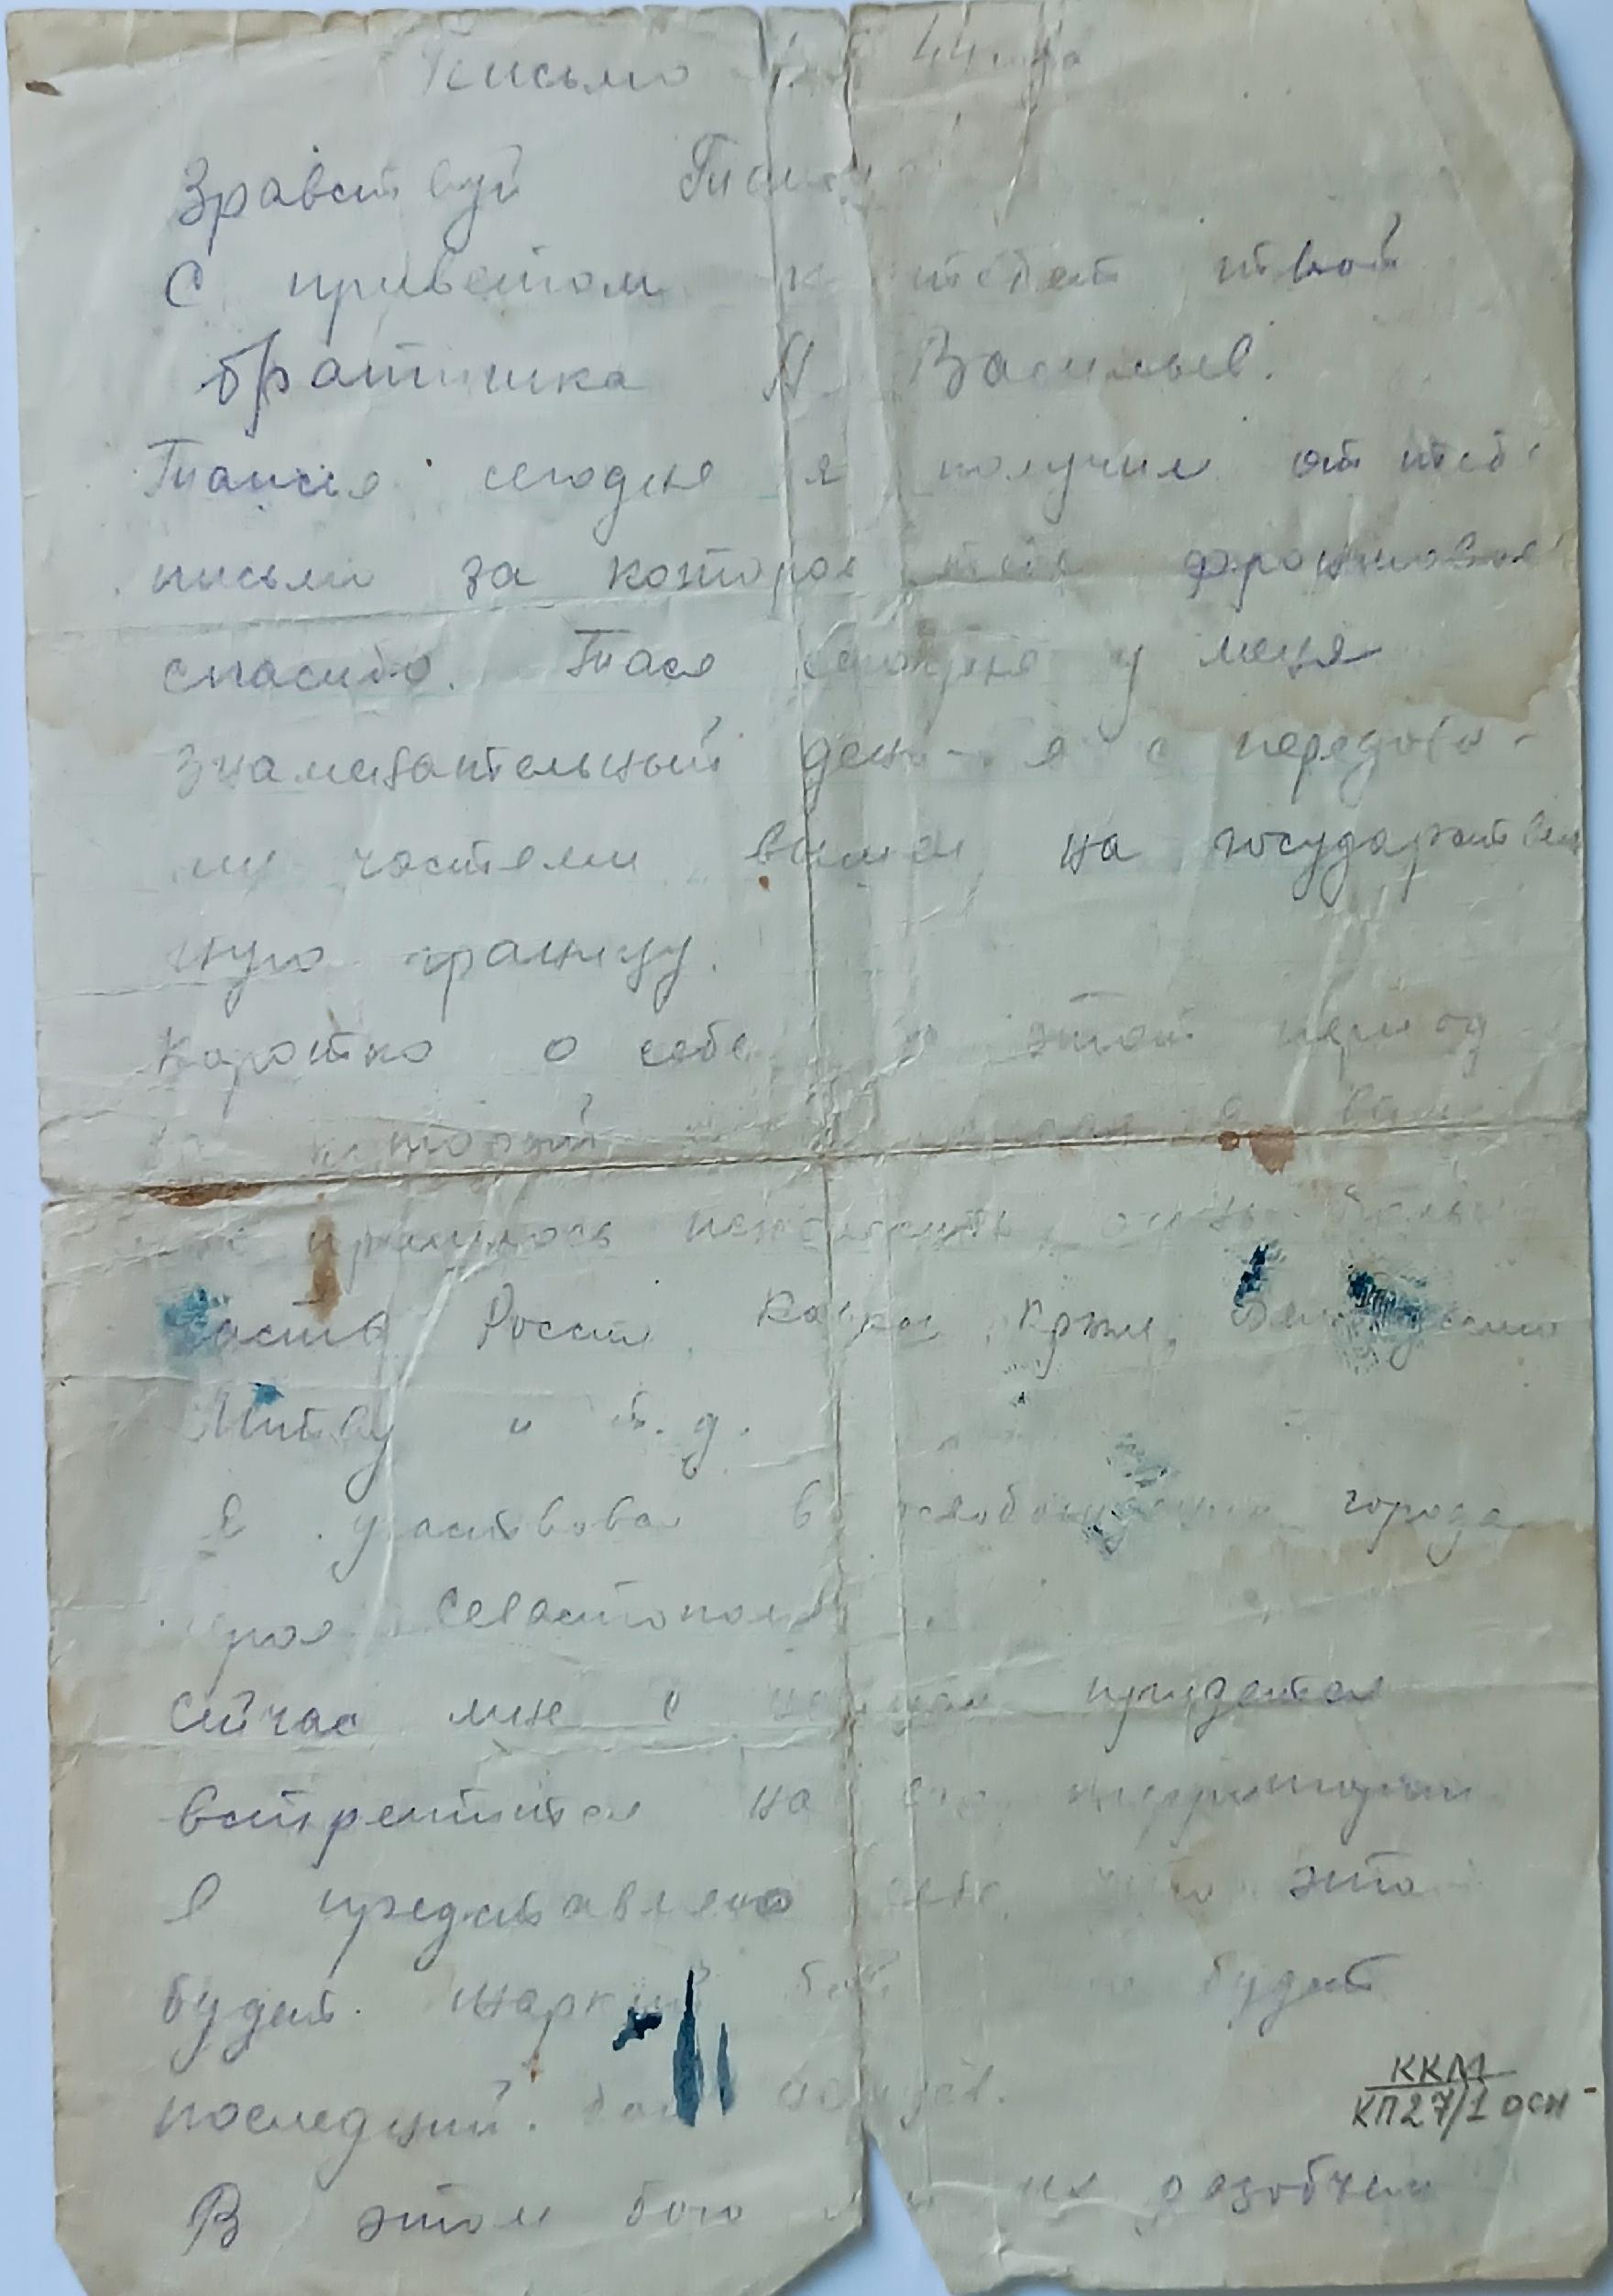 Письмо 44 года
Зравствуй Тася
С приветом к тебе твой
братишка А Васильев.
Таися сегодня я получил от тебя
письмо за которое тебе фронтовое
спасибо. Тася сегодня у меня
знаменательный день - я с передовы-
ми частями вышел на государствен
ную границу.
Коротко о себе за этот период
который
пришлось очень
часть России Кавказ, Крым,
Литву и т. д.
Я участвовал в освобождении города
героя Севастополя.
Сейчас мне с придется
встретится на его территории
Я представляю себе что это
будет жаркий бой будет
последний.
В этом бою мы их разобьем
ККМ
КП27/1 осн-